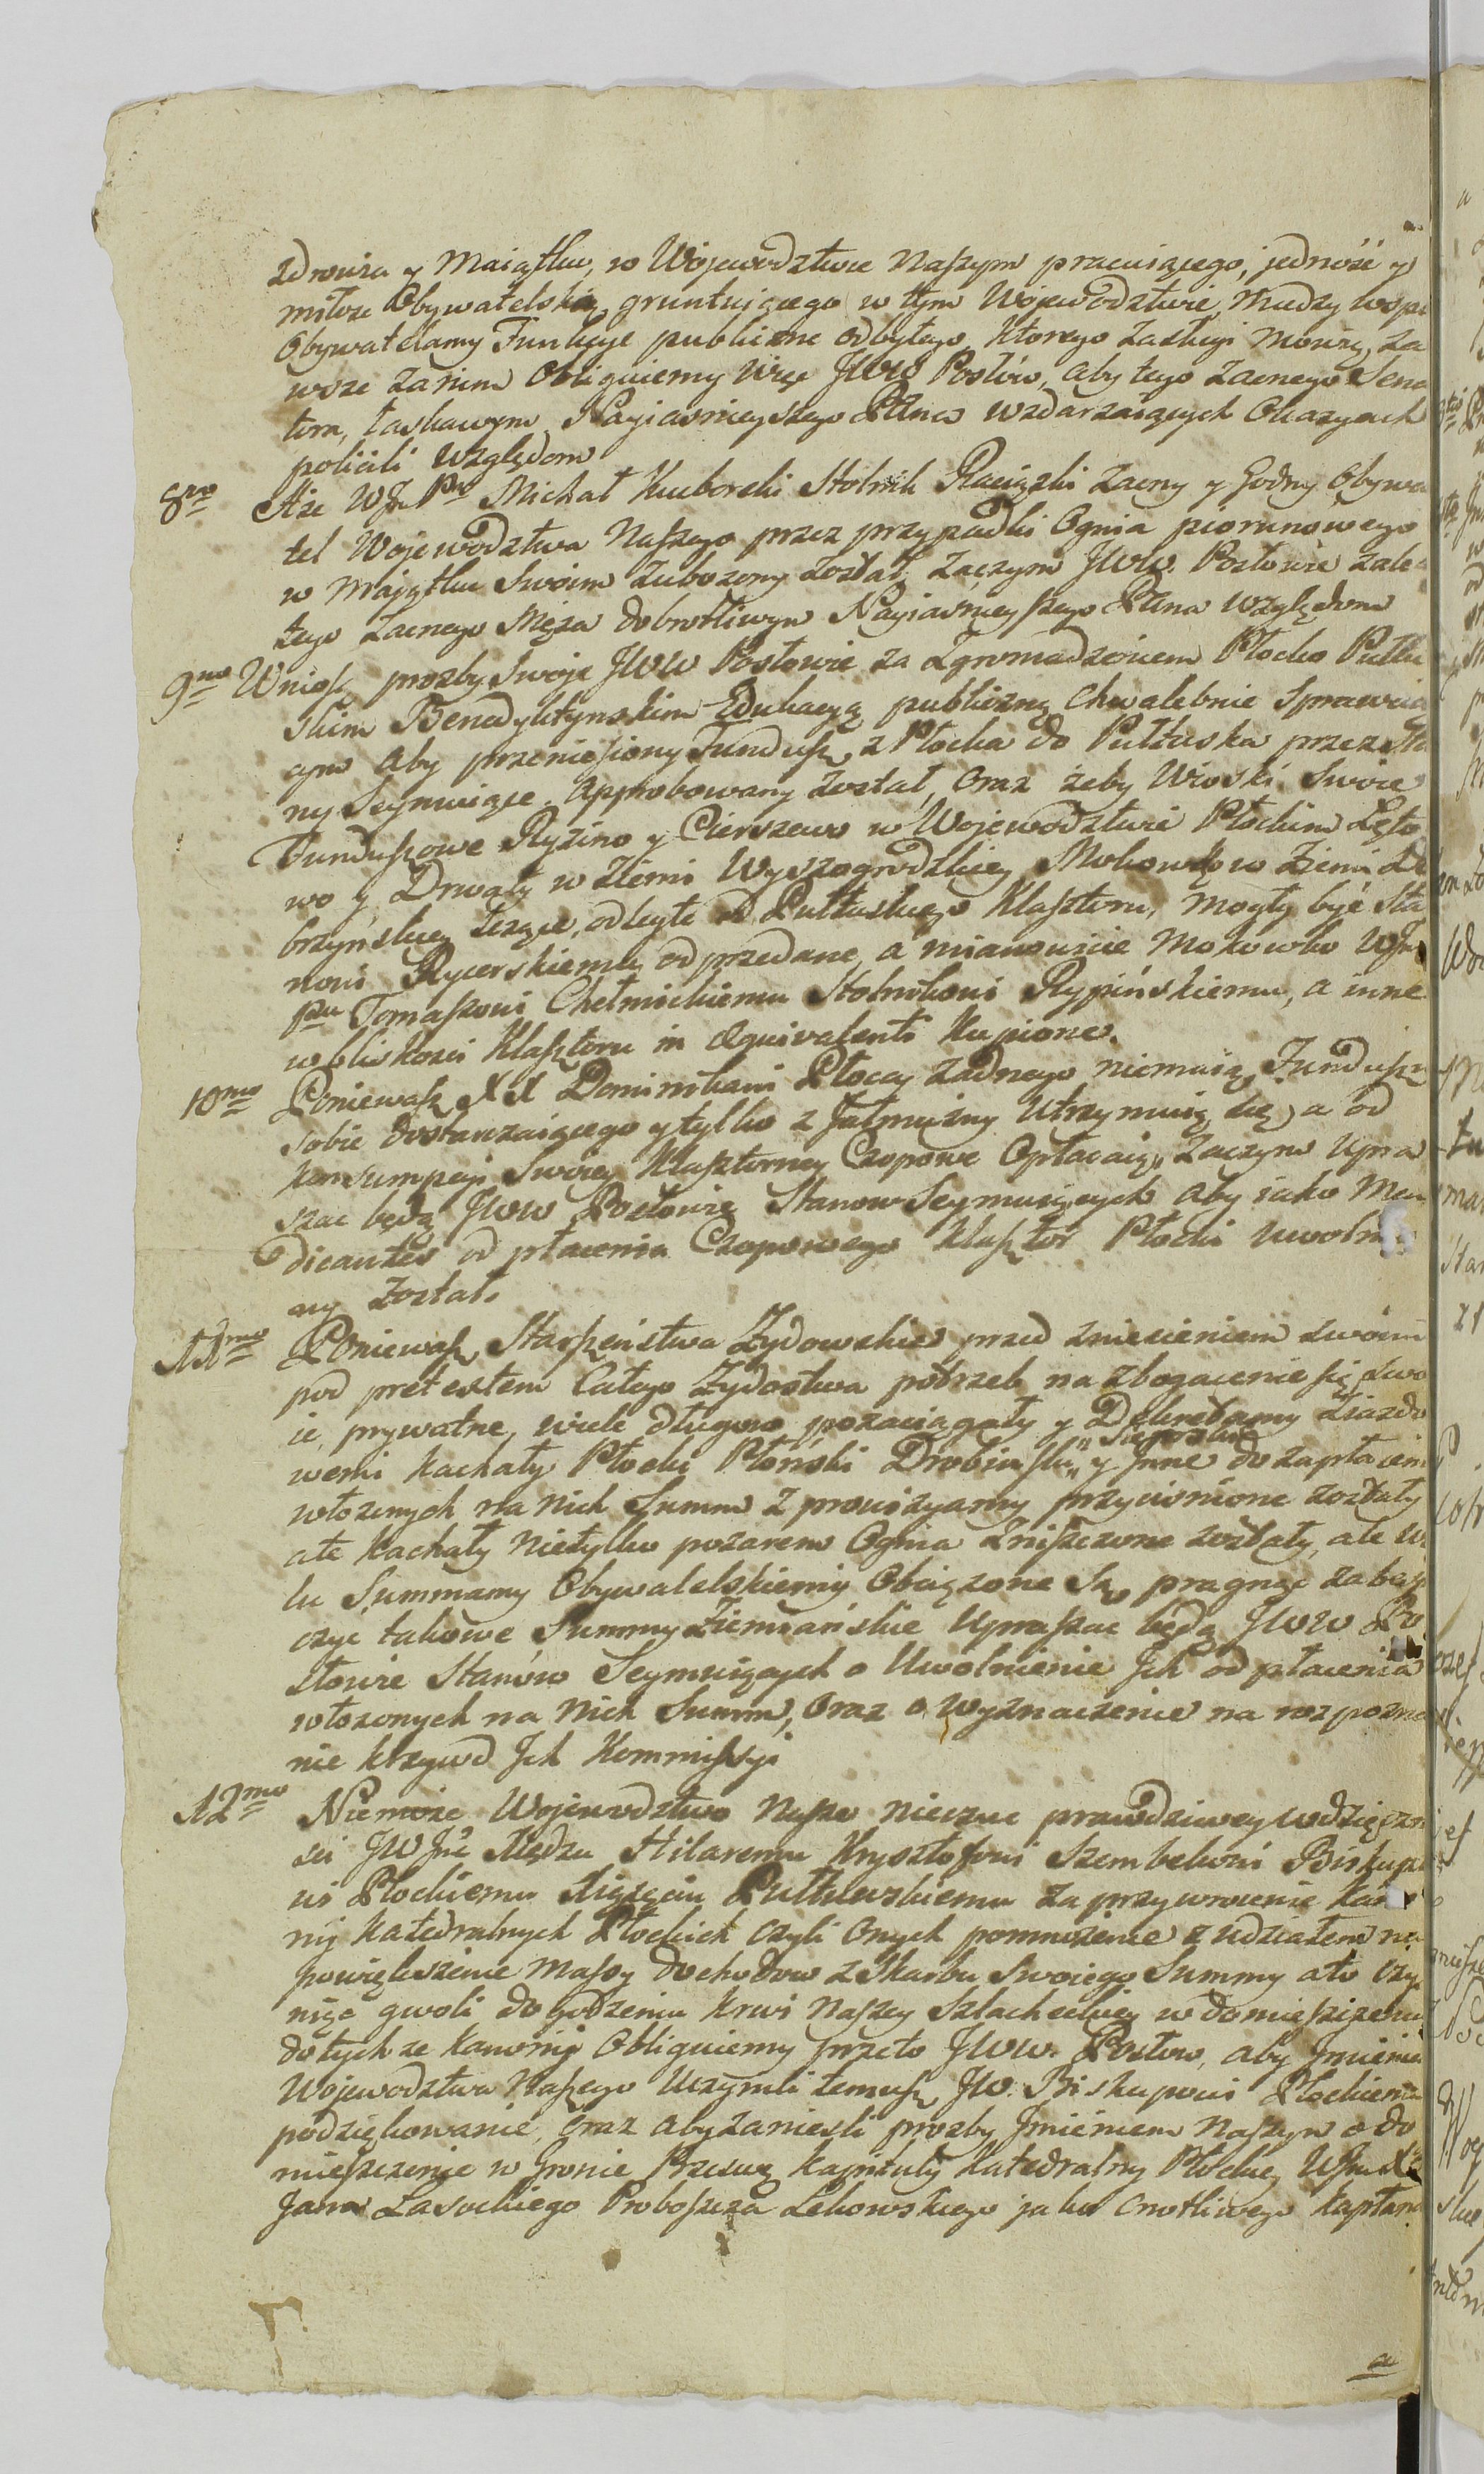 zdrowia y Maiątku, w Wojewodztwie Naszym pracuiącego, jedność y
miłość Obywatelską gruntuiącego w tym Wojewodztwie, między wspu
Obywatelamy Funkcye publiczne odbyłego, ktorego zasługi mowią, za
wsze za nim Obliguiemy więc JWW Posłów, aby tego zacnego Sena
tora, łaskawym Nayiasnieyszego Pana wzdarzaiących Okazyach
policili względom
8vo Aże WJn Pn Michał Kuborski Stolnik Raciązki zacny y Godny Obywa
tel Wojewodztwa Naszego przez przypadki Ognia piorunowego
w Majątku Swoim zubozony został, zaczym JWW. Posłowie zalec
tego zacnego Męża dobrotliwym Nayiasnieyszego Pana względom
9no Wniosą prozby Swoje JWW Posłowie za Zgromadzeniem Płocko Pułtu
skim Benedyktynskim Edukacyą publiczną chwalebnie Sprawuią
cym aby przeniesiony Fundusz z Płocka do Pułtuska przez Sta
ny Seymuiące Approbowany został, Oraz żeby Wioski Swoie
Funduszowe Ryzino y Cierszewo w Wojewodztwie Płockim Łęto
wo y Drwały w Ziemi Wyszogrodzkiey Mokowko w Ziemi Do
brzyńskiey leżące, odległe od Pułtuskiego Klasztoru, mogły być Sta
nowi Rycerskiemu odprzedane, a mianowicie Mokowko WJn
Pnu Tomaszowi Chełmickiemu Stolnikowi Rypińskiemu, a inne
w bliskosci Klasztoru in Æquivalenti Kupione.
10mo Poniewasz XX Dominikani Płoccy żadnego niemaią Funduszu
sobie dostarczaiącego y tylko z Jałmużny Utrzymuią się, a od
konsumpcyi Swoiey Klasztorney Czopowe Opłacaią, zaczym Upra
szac będą JWW Posłowie Stanow Seymuiących aby iako Men
dicantes od płacenia Czopowego Klasztor Płocki Uwolnio
ny został.
11mo Poniewasz Starszeństwa Zydowskie przed zniesieniem swoim
pod pretextem Całego Zydostwa potrzeb na zbogacenie się swo
ie, prywatne, wiele długow pozaciągały y Dekretamy Ziazdo
wemi Kachały Płocki Płoński Drobiński " Sierpski " y Jnne do zapłacen
włozonych na nich Summ z prowizyamy przycisnione zostały
ale Kachały nietylko pozarem Ognia Zniszczone zostały, ale w
lu Summamy Obywatelskiemi Obciązone Są, pragnąc zabesp
czyc takowe Summy Ziemiańskie Upraszac będą JWW Po
słowie Stanów Seymuiących o Uwolnienie Jch od płacenia
włozonych na Nich Summ, Oraz o wyznaczenie na rozpozna
nie krzywd Jch Kommissyi
12mo Niemoże Wojewodztwo Nasze nieczuc prawdziwey wdzięczno
sci JWJX Xiędzu Hilaremu Krysztofowi Szembekowi Biskupo
wi Płockiemu Xiążęciu Pułtuskiemu za przywrocenie Kano
nij Katedralnych Płockich czyli Onych pomnozenie z udziałem na
powiększenie Massy dochodow z Skarbu Swoiego Summy a to czy
niąc gwoli dogodzeniu krwi Naszey Szlacheckiey w domieszczeniu
do tychze kanonij Obliguiemy przeto JWW. Posłow, aby Jmieniem
Wojewodztwa Naszego Uczynili temusz JW. Biskupowi Płockiemu
podziękowanie, Oraz aby zaniesli prozby Jmieniem Naszym o do
mieszczenie w Gronie Przeswey Kapituły Katedralny Płockiey WJn X
Jana Lasockiego Proboszcza Lekowskiego jako Cnotliwego Kapłana
a